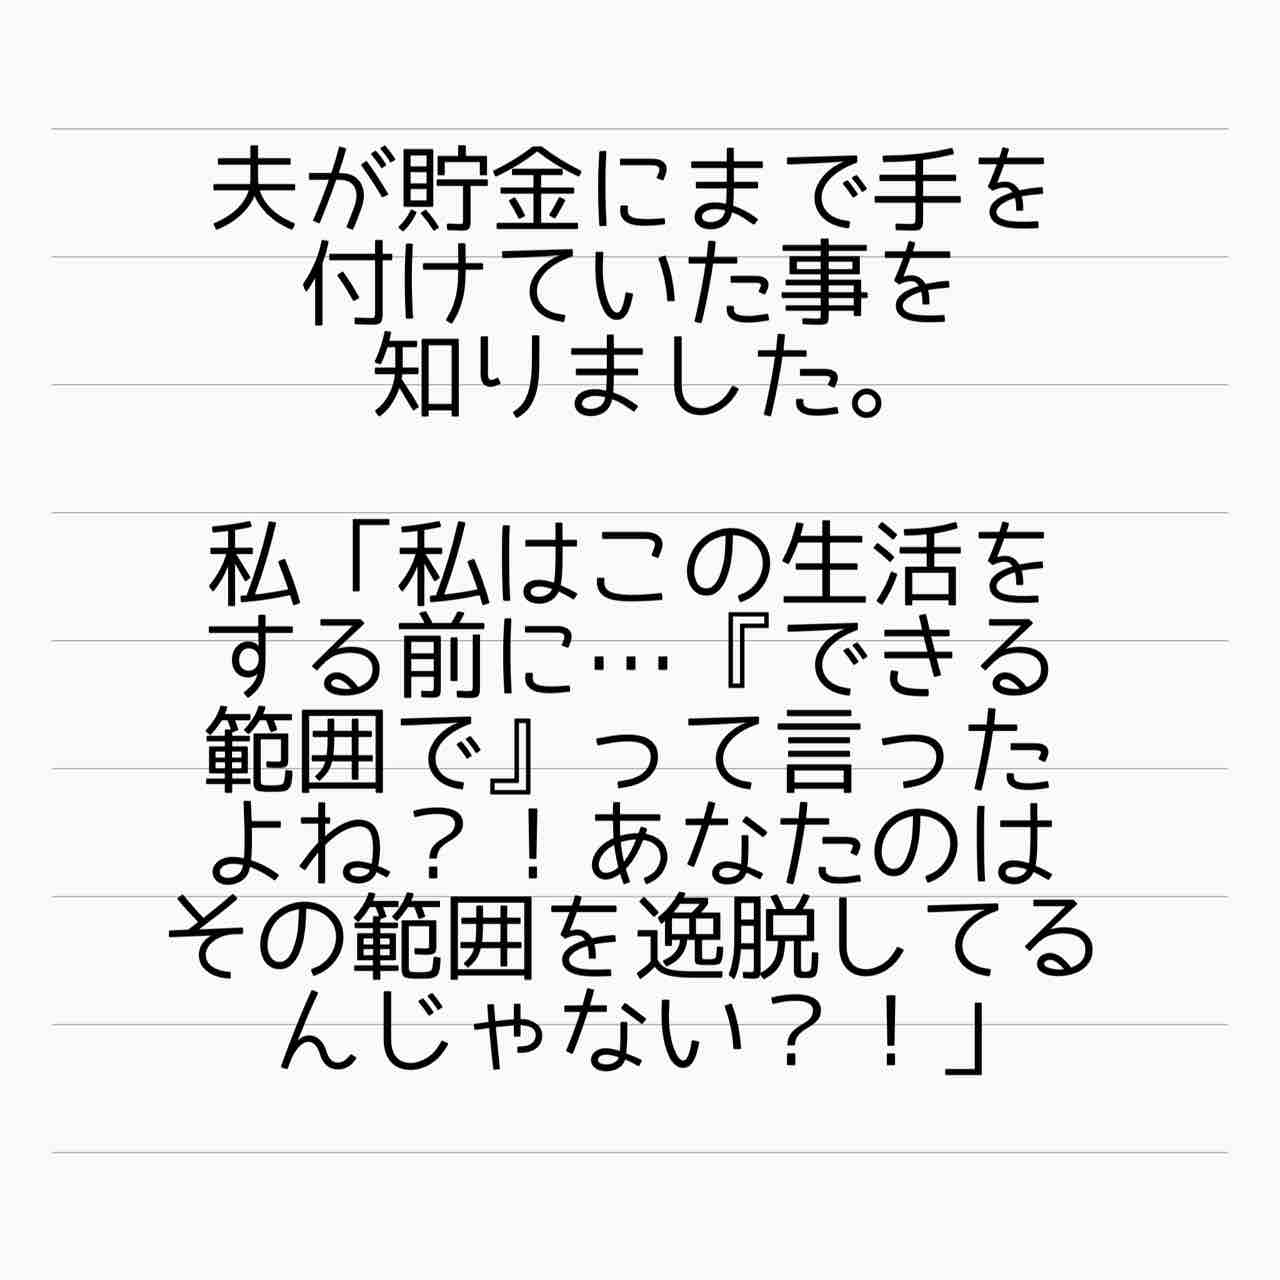 夫が貯金にまで手を
付けていた事を
知りました。
私「私はこの生活を
する前に…『できる
範囲で』って言った
よね？！あなたのは
その範囲を逸脱してる
んじゃない？！」